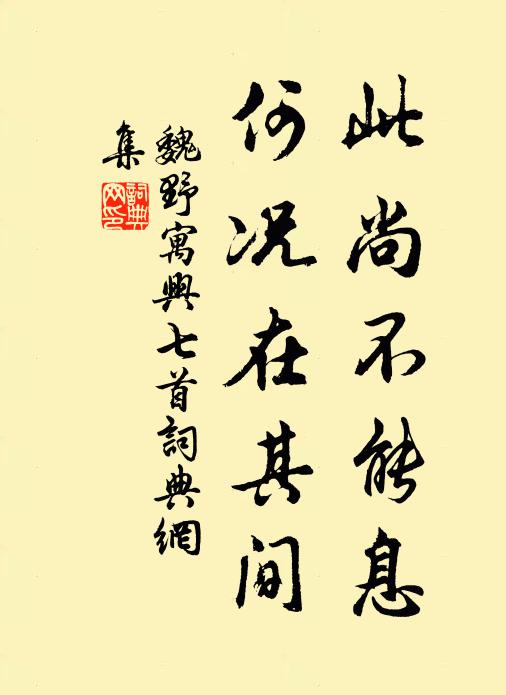 此尚不能息
何况在其间
魏野寓興七首詞典網
集
詞典網印